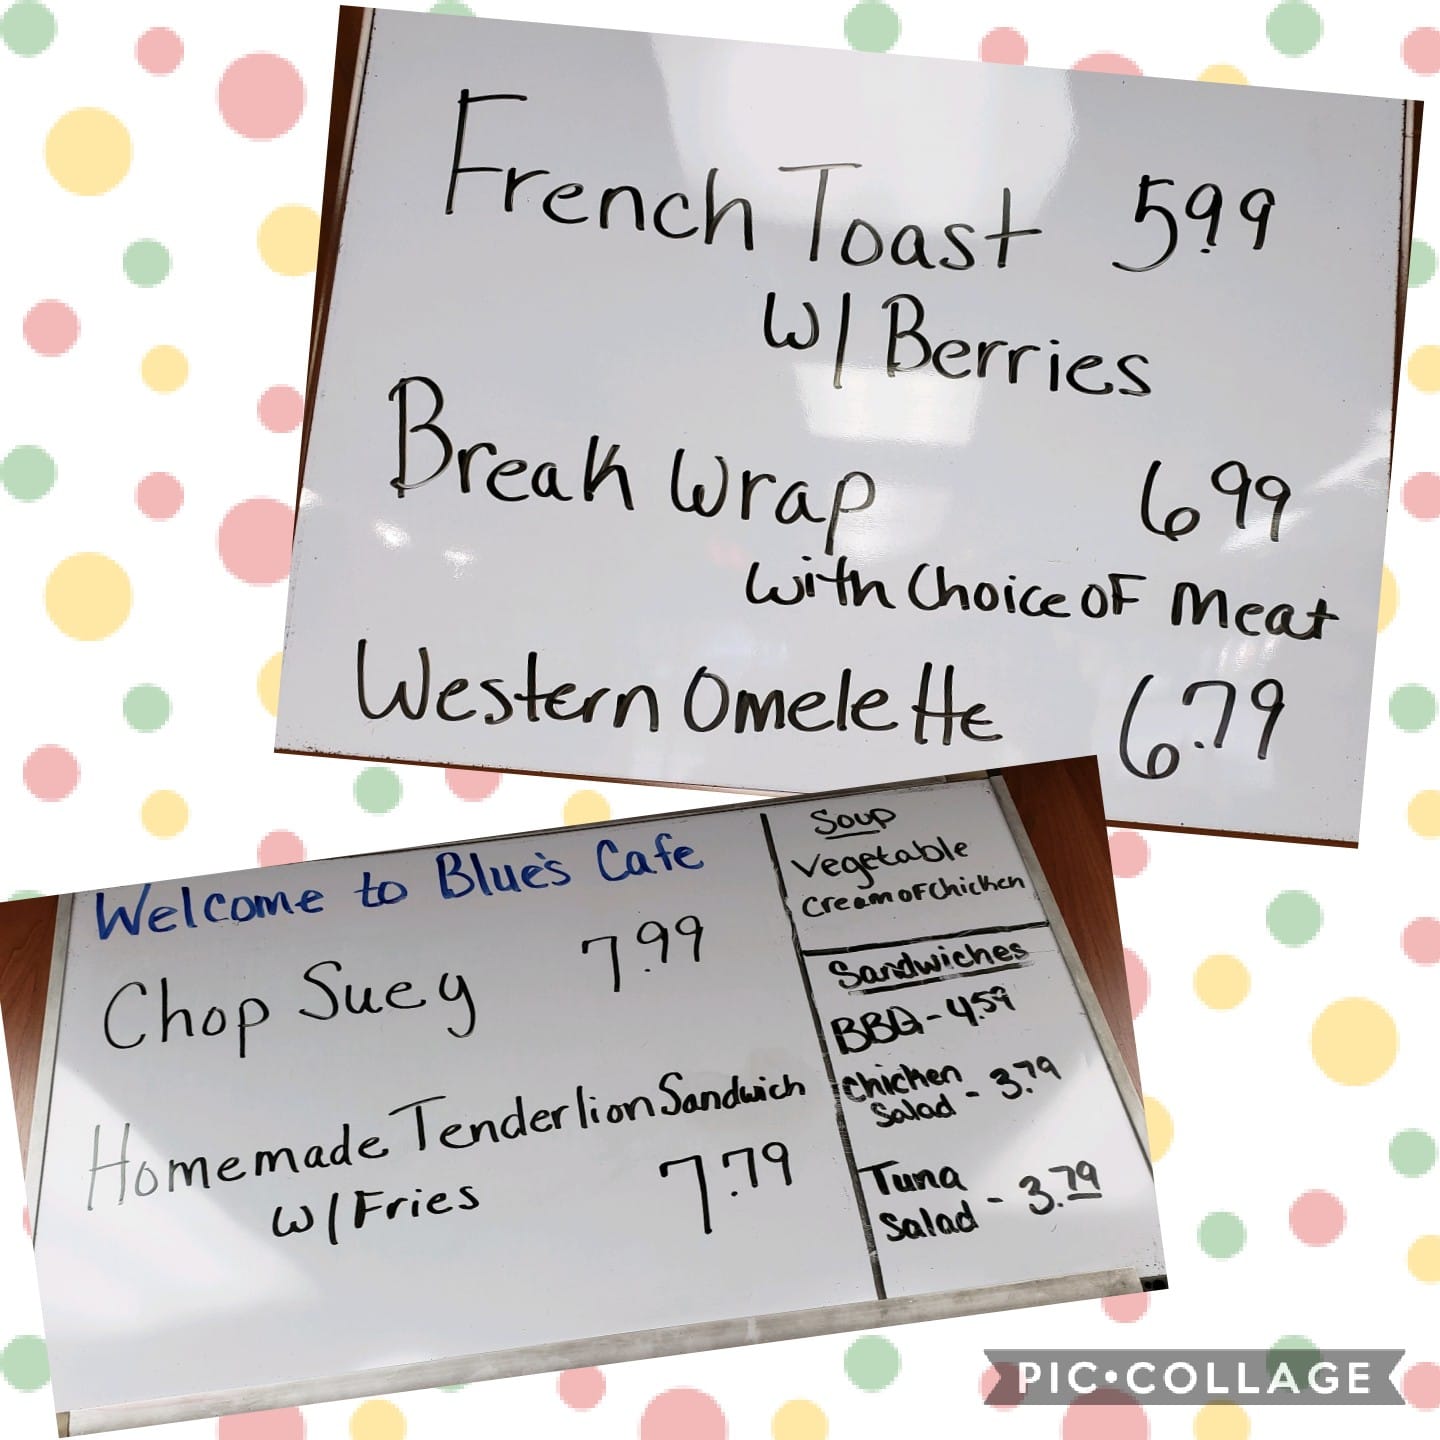 French Toast 5.99
w/ Berries
Break Wrap 6.99
with Choice OF Meat
Western Omelette 6.79
Welcome to Blue's Cafe
Chop Suey 7.99
Homemade Tenderlion Sandwich
w/ Fries 7.79
Soup
Vegetable
Cream of Chicken
Sandwiches
BBQ - 4.59
Chicken
Salad - 3.79
Tuna
Salad - 3.79
PIC•COLLAGE